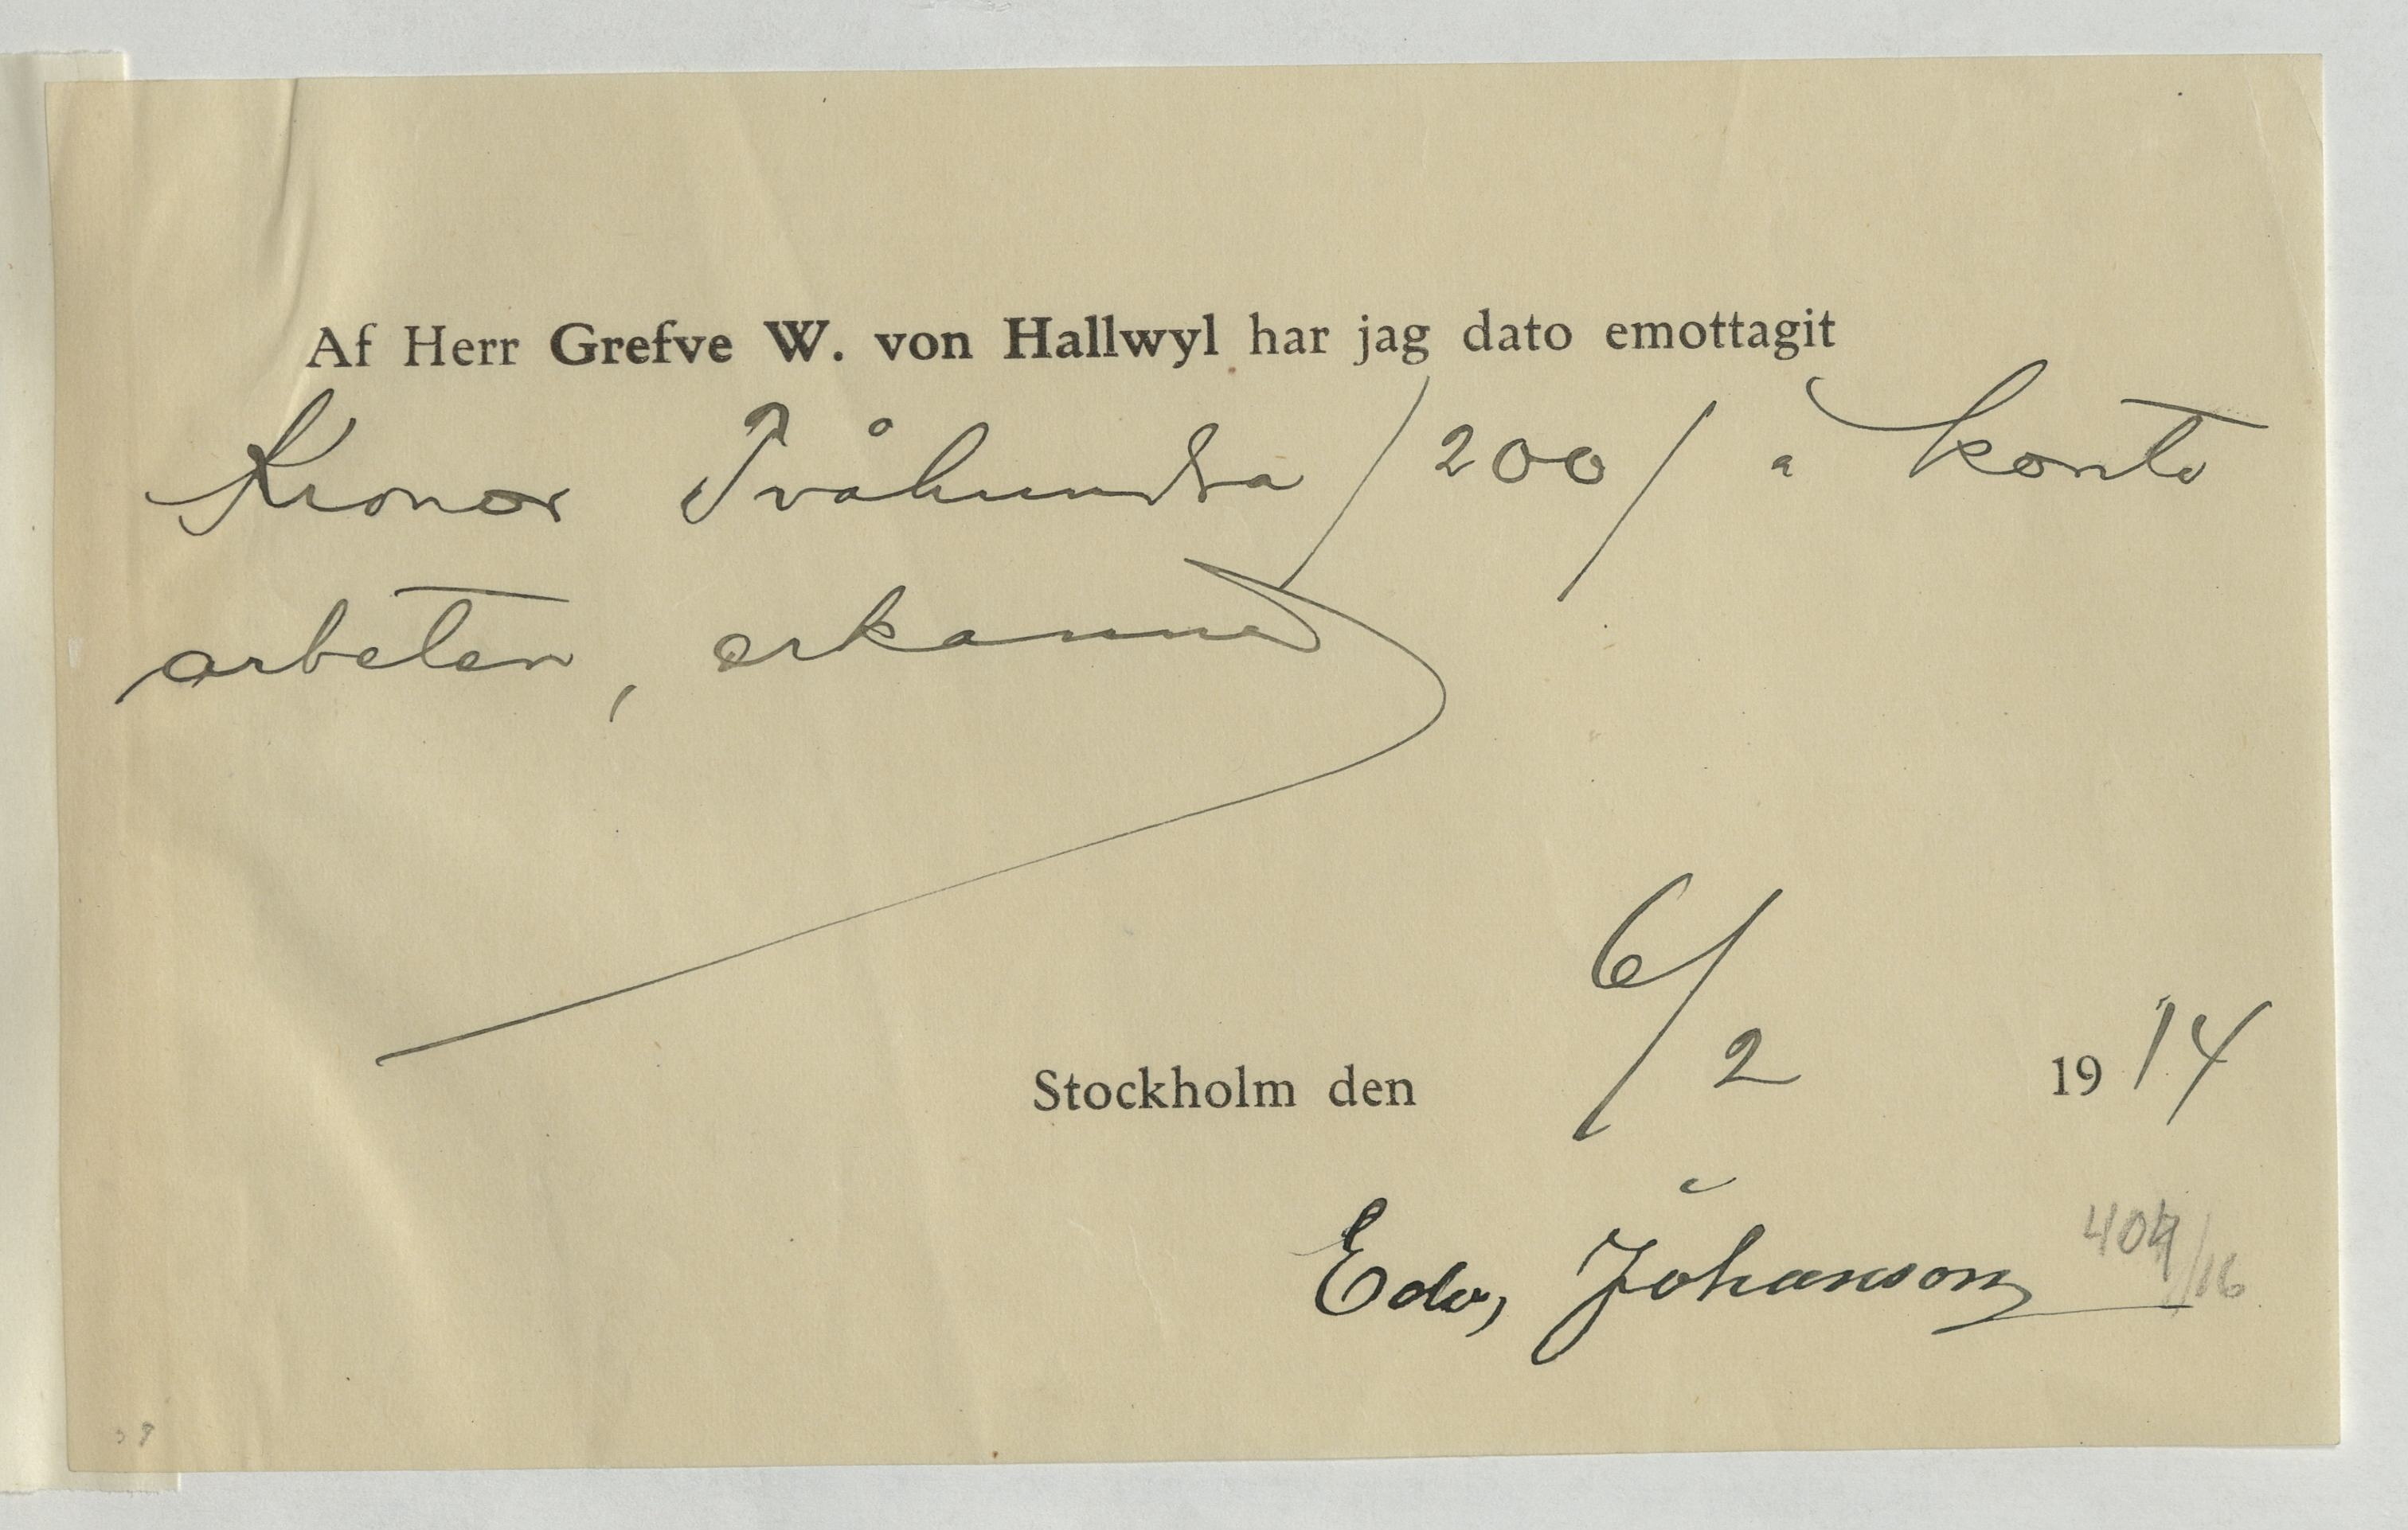 Af Herr Grefve W. von Hallwyl har jag dato emottagit
Kronor Tvåhundra /200/ à konto
arbeten, erkännes
6/2
Stockholm den 1914
Edv, Johanson